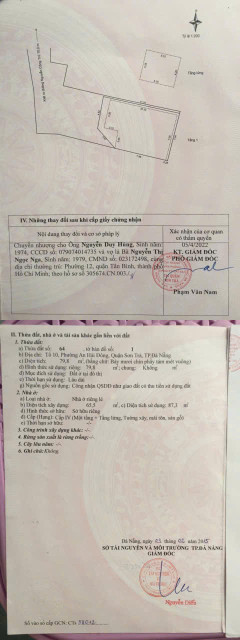 Tầng lửng
Tầng 1
IV. Những thay đổi sau khi cấp giấy chứng nhận
Nội dung thay đổi và cơ sở pháp lý
Xác nhận của cơ quan
có thẩm quyền
Chuyển nhượng cho Ông Nguyễn Duy Hùng, Sinh năm:
1974, CCCD số: 079074014735 và vợ là Bà Nguyễn Thị
Ngọc Nga, Sinh năm: 1979, CMND số: 023172498, cùng
địa chỉ thường trú: Phường 12, quận Tân Bình, thành phố
Hồ Chí Minh; theo hồ sơ 305674.CN.003
05/4/2022
KT. GIÁM ĐỐC
PHÓ GIÁM ĐỐC
Phạm Văn Nam
II. Thửa đất, nhà ở và tài sản khác gắn liền với đất
1. Thửa đất:
a) Thửa đất số: 64 tờ bản đồ số: 1
b) Địa chỉ: Tổ 10, Phường An Hải Đông, Quận Sơn Trà, TP.Đà Nẵng
c) Diện tích: 79,8 m², (bằng chữ: Bảy mươi chín phẩy tám mét vuông)
d) Hình thức sử dụng: riêng: 79,8 m²; chung: Không m²
đ) Mục đích sử dụng: Đất ở tại đô thị
e) Thời hạn sử dụng: Lâu dài
g) Nguồn gốc sử dụng: Công nhận QSDĐ như giao đất có thu tiền sử dụng đất
2. Nhà ở:
a) Loại nhà ở: Nhà ở riêng lẻ
b) Diện tích xây dựng: 65,5 m², c) Diện tích sử dụng: 87,3 m²
d) Hình thức sở hữu: Sở hữu riêng
đ) Cấp (Hạng): Cấp IV
e) Thời hạn sở hữu: -/-
3. Công trình xây dựng khác: -/-
4. Rừng sản xuất là rừng trồng: -/-
5. Cây lâu năm: -/-
6. Ghi chú: Không
Đà Nẵng, ngày
SỞ TÀI NGUYÊN VÀ MÔI TRƯỜNG TP.ĐÀ NẴNG
GIÁM ĐỐC
Số vào sổ cấp GCN: CTs